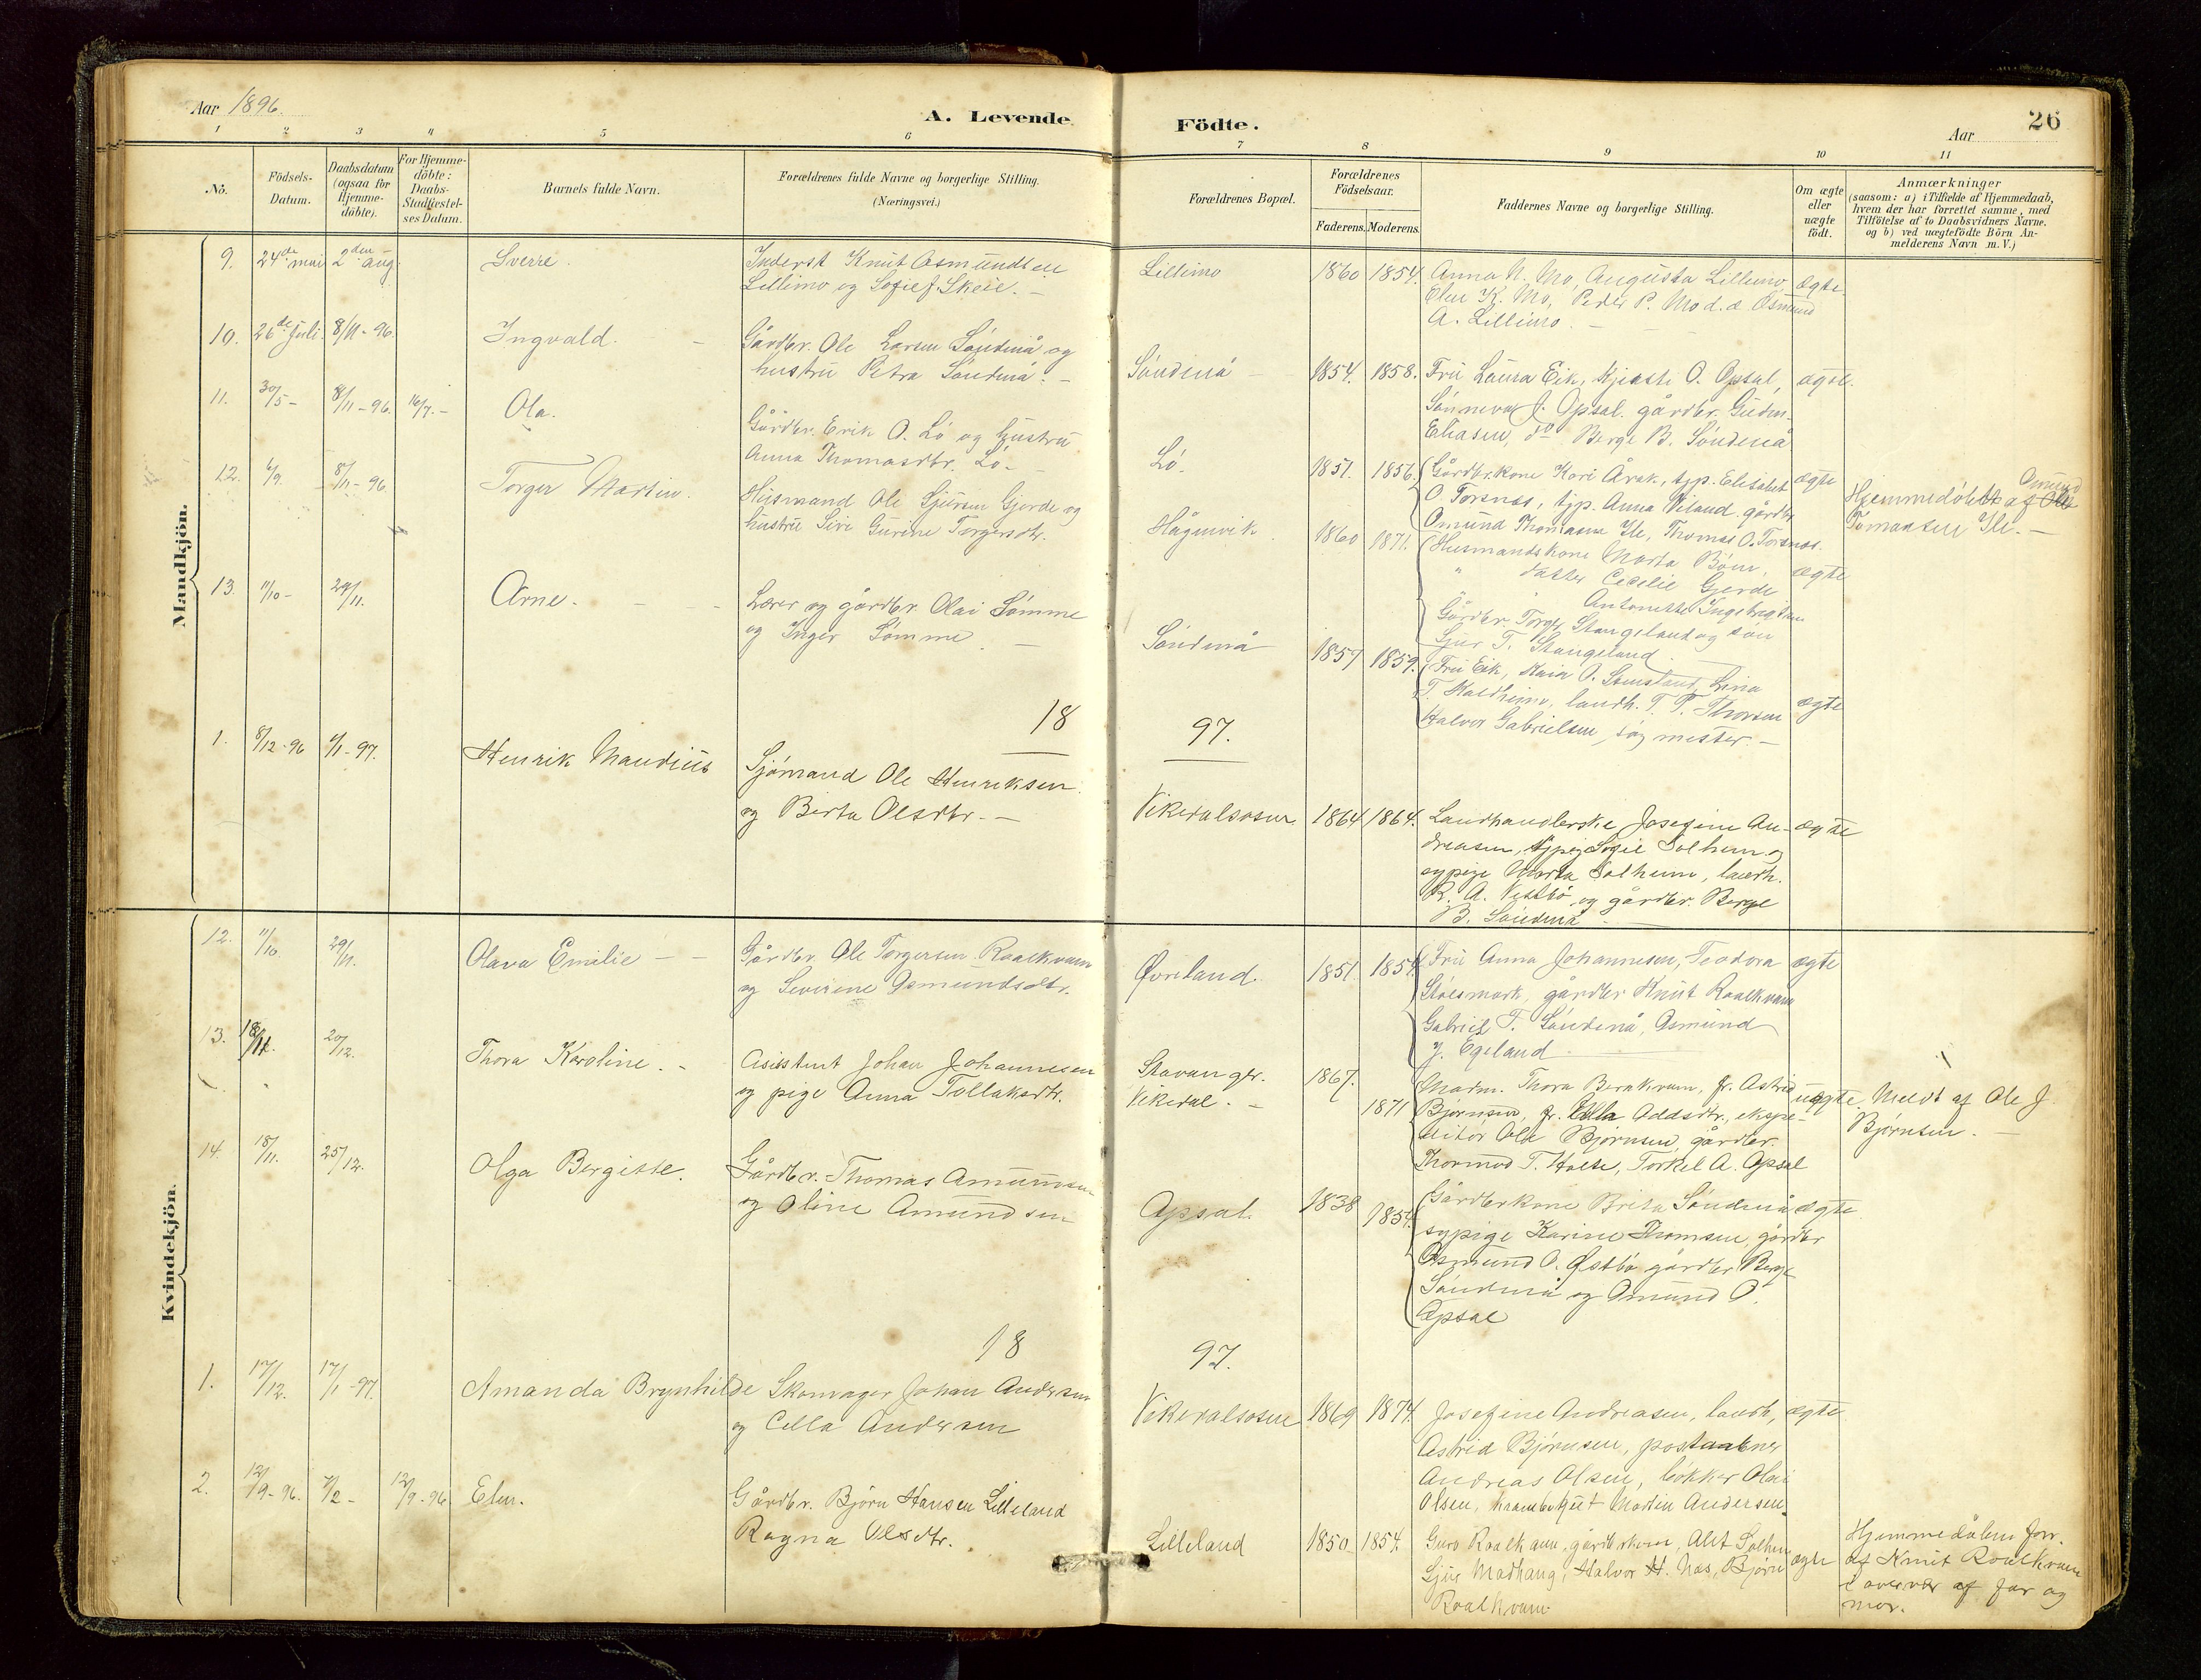 Aar 1896.
A. Levende Födte.
Aar 26
1 2 3 4 5 6 7 8 9 10 11
No.
Födsels-
Datum.
Daabsdatum
(ogsaa for
Hjemme-
döbte).
For Hjemme-
döbte:
Daabs-
Stadfæstel-
ses Datum.
Barnets fulde Navn.
Forældrenes fulde Navne og borgerlige Stilling.
(Næringsvei.)
Forældrenes Bopæl.
Forældrenes
Födselsaar.
Faderens. Moderens.
Faddernes Navne og borgerlige Stilling.
Om ægte
eller
uægte
födt.
Anmærkninger
(saasom: a) i Tilfælde af Hjemmedaab,
hvem der har forrettet samme, med
Tilföielse af to Daabsvidners Navne.
og b) ved uægtefödte Börn An-
melderens Navn m. V.)
Mandkjön.
9. 24de mai 2den aug. Sverre.
Inderst Knut Osmundsen
Lillimo og Sofie J. Skeie. -
Lillimo 1860 1854.
Anna N. Mo, Augusta Lillimo,
Elen K. Mo, Peder P. Mo d.æ Osmund
A. Lillimo.
ægte.
10. 26de Juli. 8/11-96. Ingvald.
Gårdbr. Ole Larsen Söndenå og
hustru Petra Söndenå. -
Söndenå 1854. 1858.
Fru Laura Eik, Kjersti O. Opsal,
Sönneva J. Opsal. gårdbr. Gudm.
Eliasen, do Berge B. Söndenå
ægte.
11. 30/5 - 8/11-96. 16/7.- Ola.
Gårdbr. Erik O. Lö og hustru
Anna Thomasdtr. Lö -
Lö. 1851. 1856.
Gårdbr.kone Kari Årek, tjp. Elisabet
O. Torsnes, tjp. Anna Viland. gårdbr
Omund Thomasen Ile, Thomas O. Torsnes.
ægte
Hjemmedöbt af Omund
Tomassen Ile. -
12. 6/9. 8/11-96. Torger Martin.
Husmand Ole Sjursen Gjerde og
hustru Siri Gurine Torgersdtr.
Hågenvik 1860 1871.
Husmandskone Marta Böen,
" datter Cecelie Gjerde
" Antonette Ingebrigtsen
Gårdbr. Torger Stangeland og sön
Sjur T. Stangeland
ægte
13. 11/10 - 29/11. Arne.
Lærer og gårdbr. Olai Sömme
og Inger Sömme
Söndenå 1857 1859.
Fru Eik, Maria O. Stensland, Lina
T. Haldheim, landh. T. P. Thorsen
Halvor Gabrielsen, sagmester. -
ægte
18 97.
1. 8/12-96 6/1-97. Henrik Maudius
Sjömand Ole Henriksen
og Berta Olsdtr. -
Vikedalsosen 1864 1864.
Landhandlerske Josefine An-
dreasen, tjpige Sofie Solheim og
sypige Marta Solheim, landh.
R. A. Vestbö og gårdbr. Berge
B. Söndenå
ægte
Kvindekjön.
12. 11/10 29/11. Olava Emilie
Gårdbr. Ole Torgersen Roalkvam
og Severine Osmundsdtr.
Øvreland. 1851. 1854.
Fru Anna Johannesen, Teodora
Stölsmark, gårdbr Knut Roalkvam
Gabriel T. Söndenå, Osmund
J. Egeland
ægte
13. 18/11. 20/12. Thora Karoline. -
Assistent Johan Johannesen
og pige Anna Tollaksdtr.
Stavanger.
Vikedal. -
1867. 1871
Madm. Thora Birakvam, fr. Astrid
Bjørnsen, fr. Ella Oddsdtr., ekspe-
ditör Ole Bjørnsen, gårdbr.
Thormod T. Holte, Torkel A. Opsal
uægte.
Meldt af Ole J.
Bjørnsen. -
14. 18/11. 25/12. Olga Bergitte.
Gårdbr. Thomas Amundsen
og Oline Amundsen
Opsal. 1838 1854.
Gårdbrkone Brita Söndenå
sypige Karine Thomsen, gårdbr
Osmund O. Østbö gårdbr Berge
Söndenå og Omund O.
Opsal
ægte
18 97.
1. 17/12. 17/1-97. Amanda Brynhilde
Skomager Johan Andersen
og Cella Andersen
Vikedalsosen 1869 1874.
Josefine Andreasen, landh,
Astrid Bjørnsen, postaabner
Andreas Olsen, bökker Olai
Olsen, krambodgut Martin Andersen.
ægte
2. 12/9-96. 7/2- 12/9-96 Elen.
Gårdbr. Bjørn Hansen Lilleland
Ragna Olsdtr.
Lilleland 1850 1854.
Guro Roalkvam, gårdbrkone, Alit Solheim
Sjur Modhaug, Halvor H. Næs, Bjørn
Roalkvam
ægte
Hjemmedåben forr.
af Knut Roalkvam
i overvær af far og
mor.